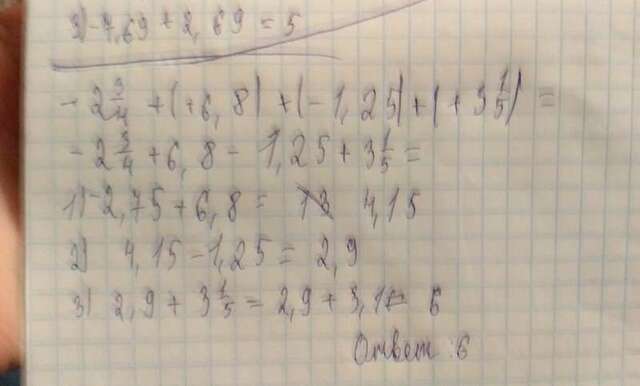 3) -7,69 + 2,69 = 5
- 2 3/4 + (+6,8) + (-1,25) + (+3 1/5) =
- 2 3/4 + 6,8 - 1,25 + 3 1/5 =
1) -2,75 + 6,8 = 4,15
2) 4,15 - 1,25 = 2,9
3) 2,9 + 3 1/5 = 2,9 + 3,1 = 6
Ответ: 6